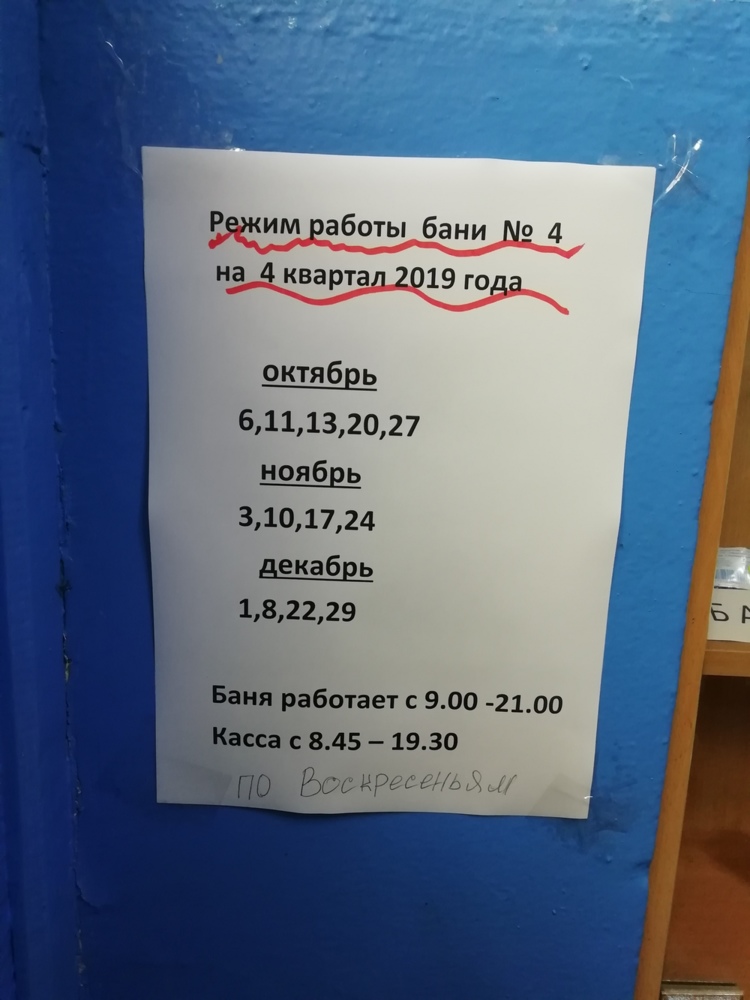 Режим работы бани № 4
на 4 квартал 2019 года
октябрь
6,11,13,20,27
ноябрь
3,10,17,24
декабрь
1,8,22,29
Баня работает с 9.00 -21.00
Касса с 8.45 – 19.30
по Воскресеньям